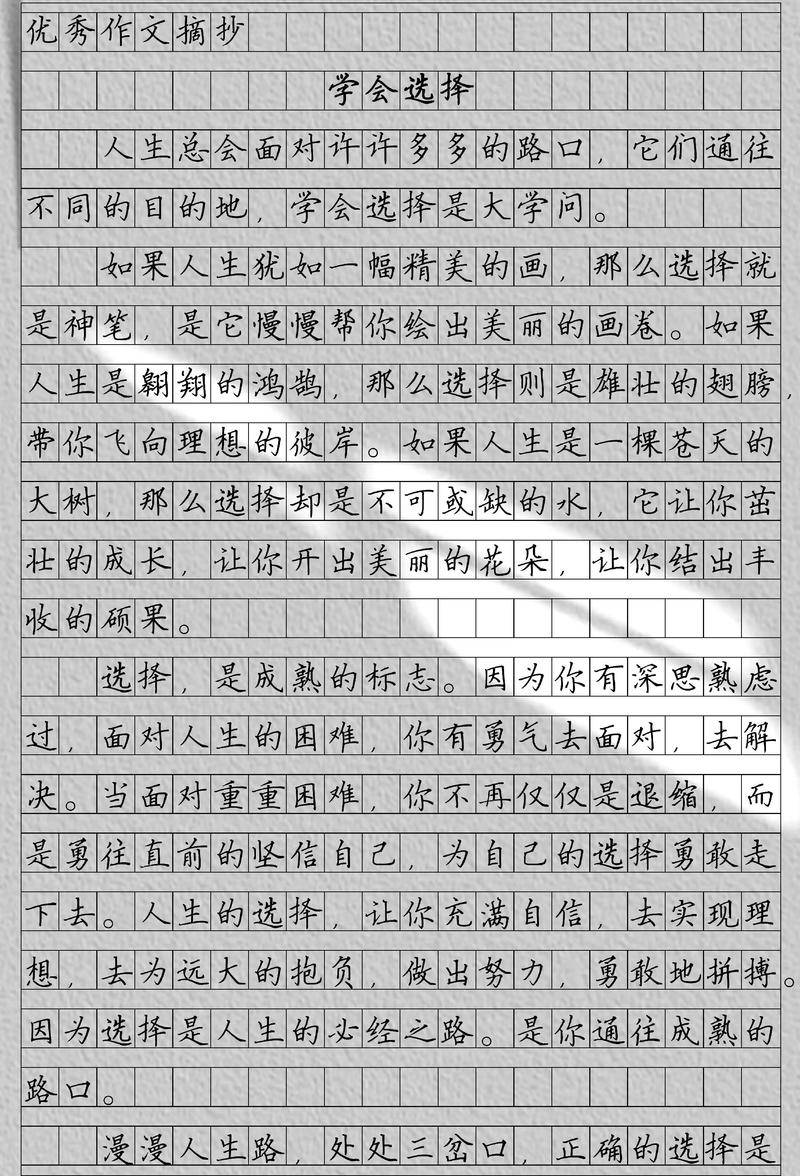 优秀作文摘抄
学会选择
人生总会面对许许多多的路口，它们通往
不同的目的地，学会选择是大学问。
如果人生犹如一幅精美的画，那么选择就
是神笔，是它慢慢帮你绘出美丽的画卷。如果
人生是翱翔的鸿鹄，那么选择则是雄壮的翅膀，
带你飞向理想的彼岸。如果人生是一棵苍天的
大树，那么选择却是不可或缺的水，它让你茁
壮的成长，让你开出美丽的花朵，让你结出丰
收的硕果。
选择，是成熟的标志。因为你有深思熟虑
过，面对人生的困难，你有勇气去面对，去解
决。当面对重重困难，你不再仅仅是退缩，而
是勇往直前的坚信自己，为自己的选择勇敢走
下去。人生的选择，让你充满自信，去实现理
想，去为远大的抱负，做出努力，勇敢地拼搏。
因为选择是人生的必经之路。是你通往成熟的
路口。
漫漫人生路，处处三岔口，正确的选择是